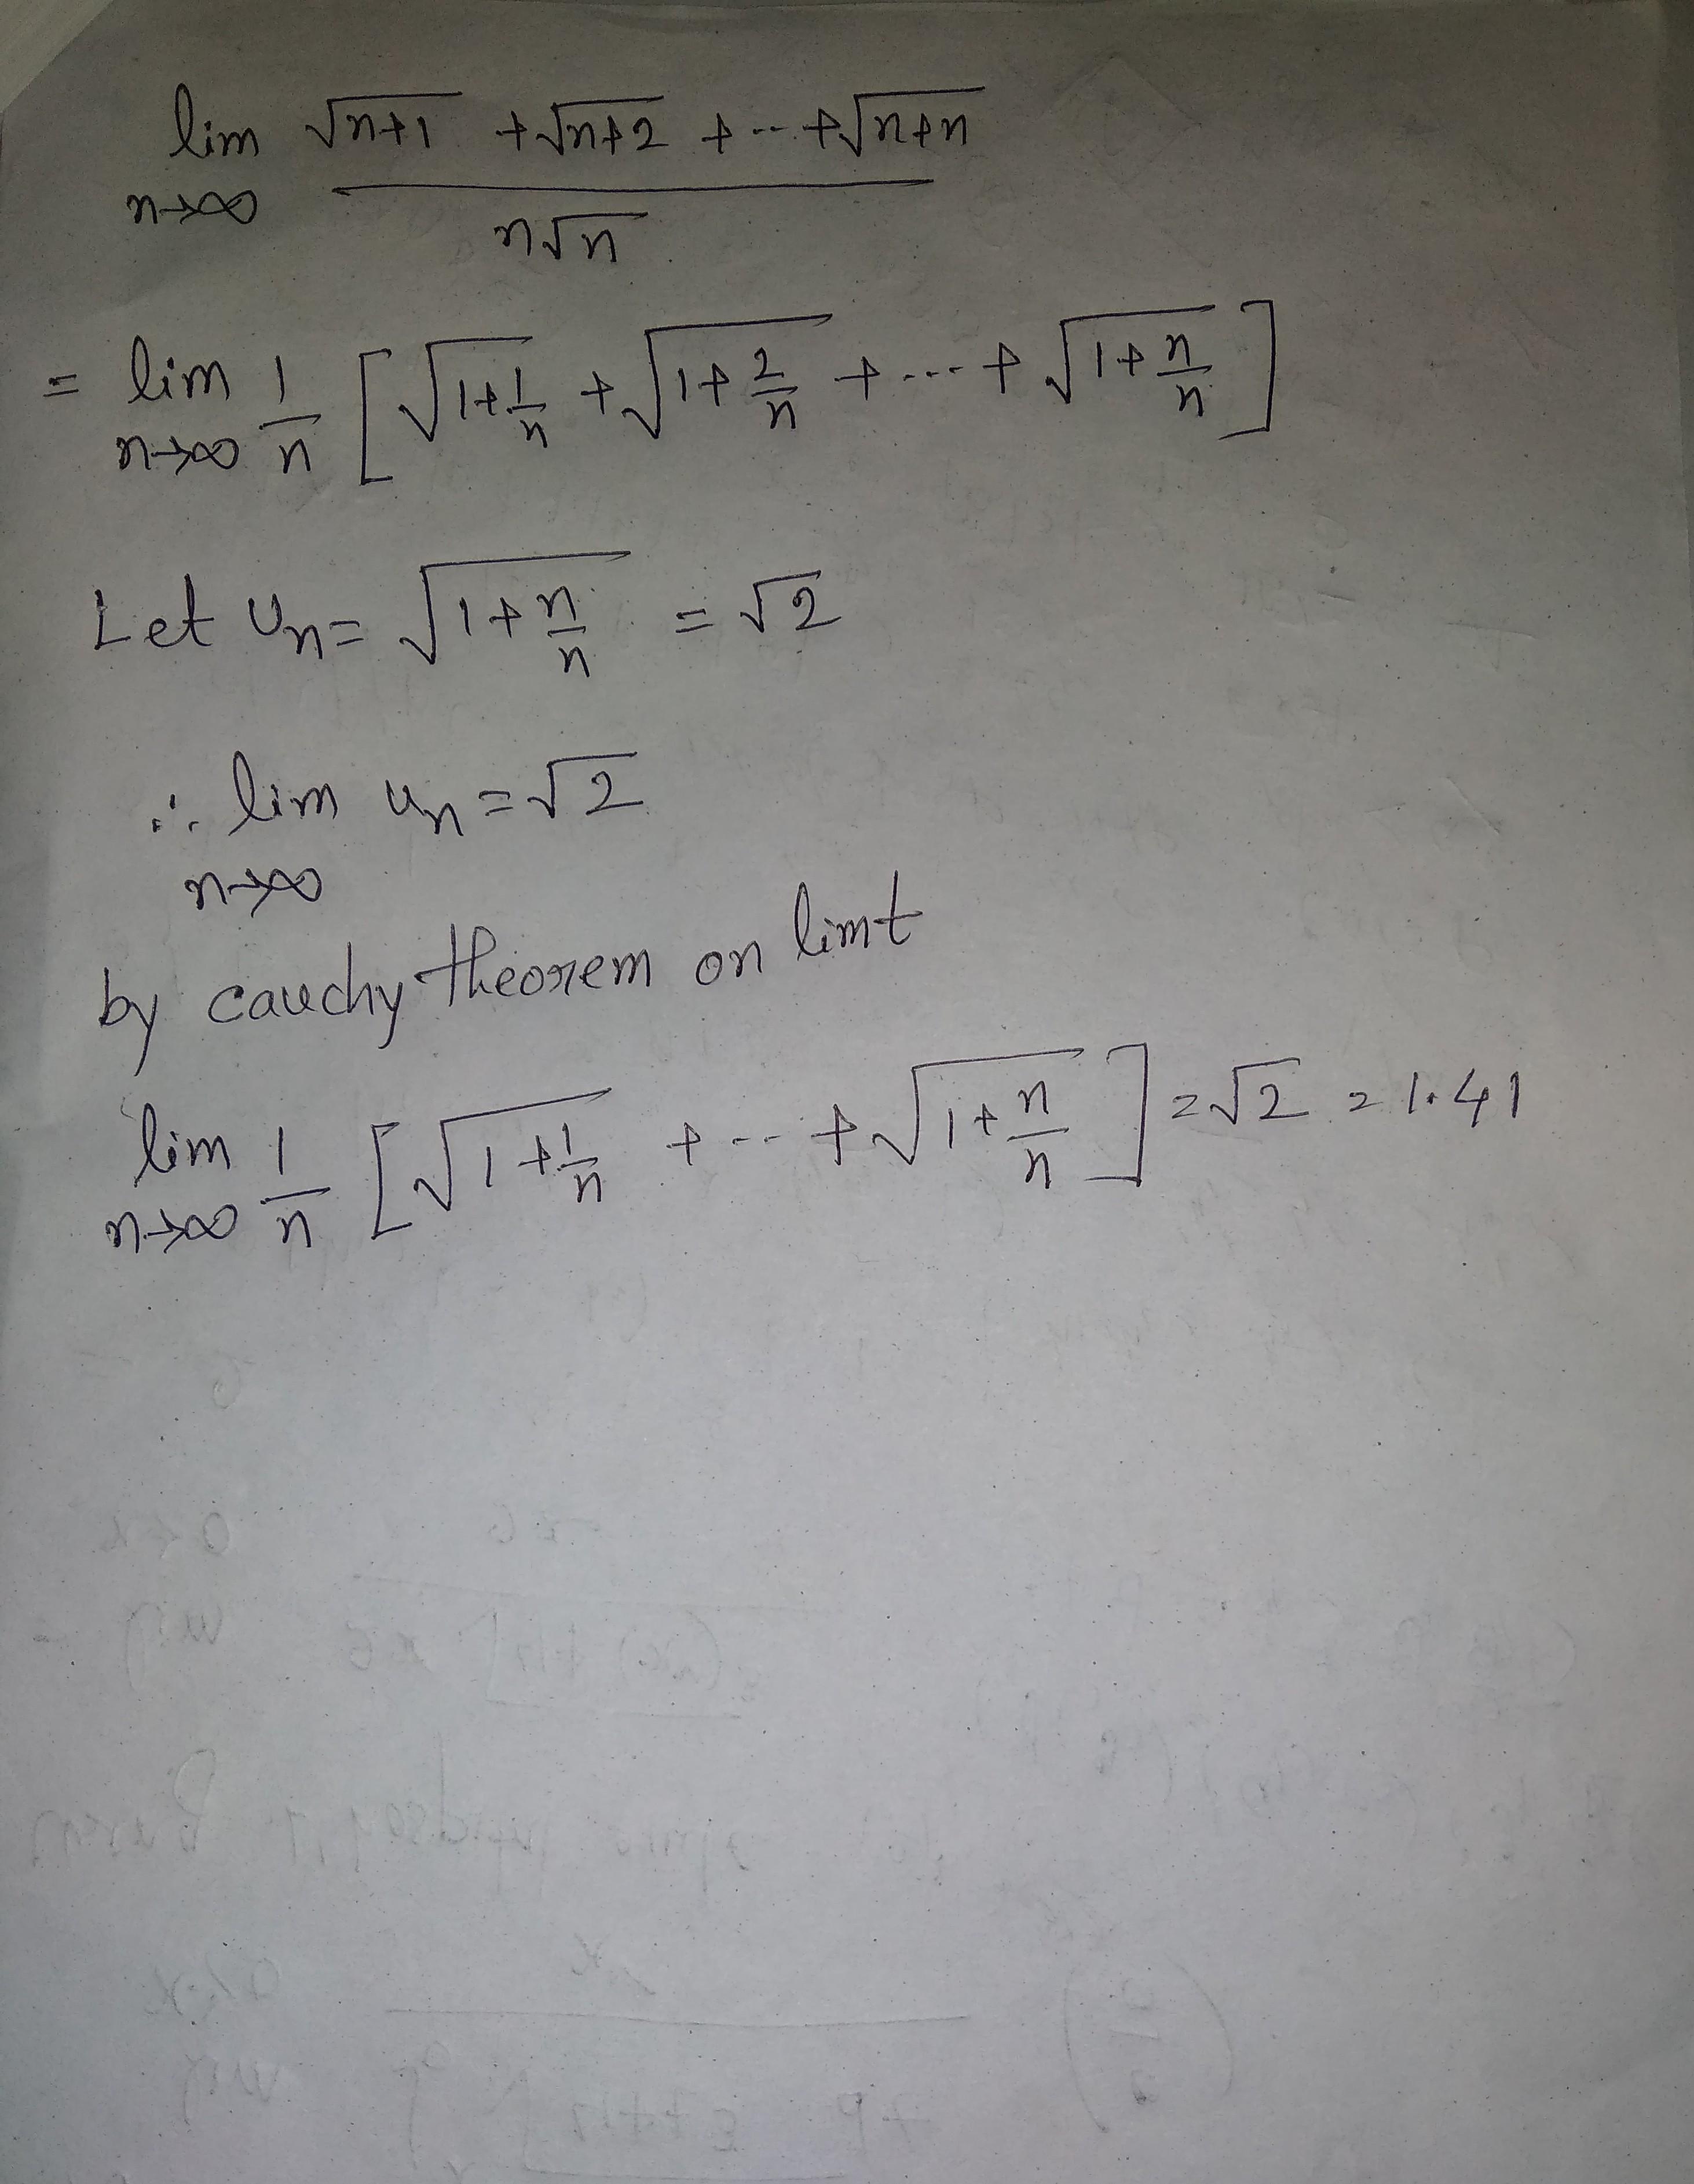 lim √(n+1) + √(n+2) + ... + √(n+n)
n→∞ n√n
= lim 1/n [ √(1+1/n) + √(1+2/n) + ... + √(1+n/n) ]
n→∞
Let un = √(1+n/n) = √2
∴ lim un = √2
n→∞
by cauchy theorem on limt
lim 1/n [ √(1+1/n) + ... + √(1+n/n) ] = √2 = 1.41
n→∞